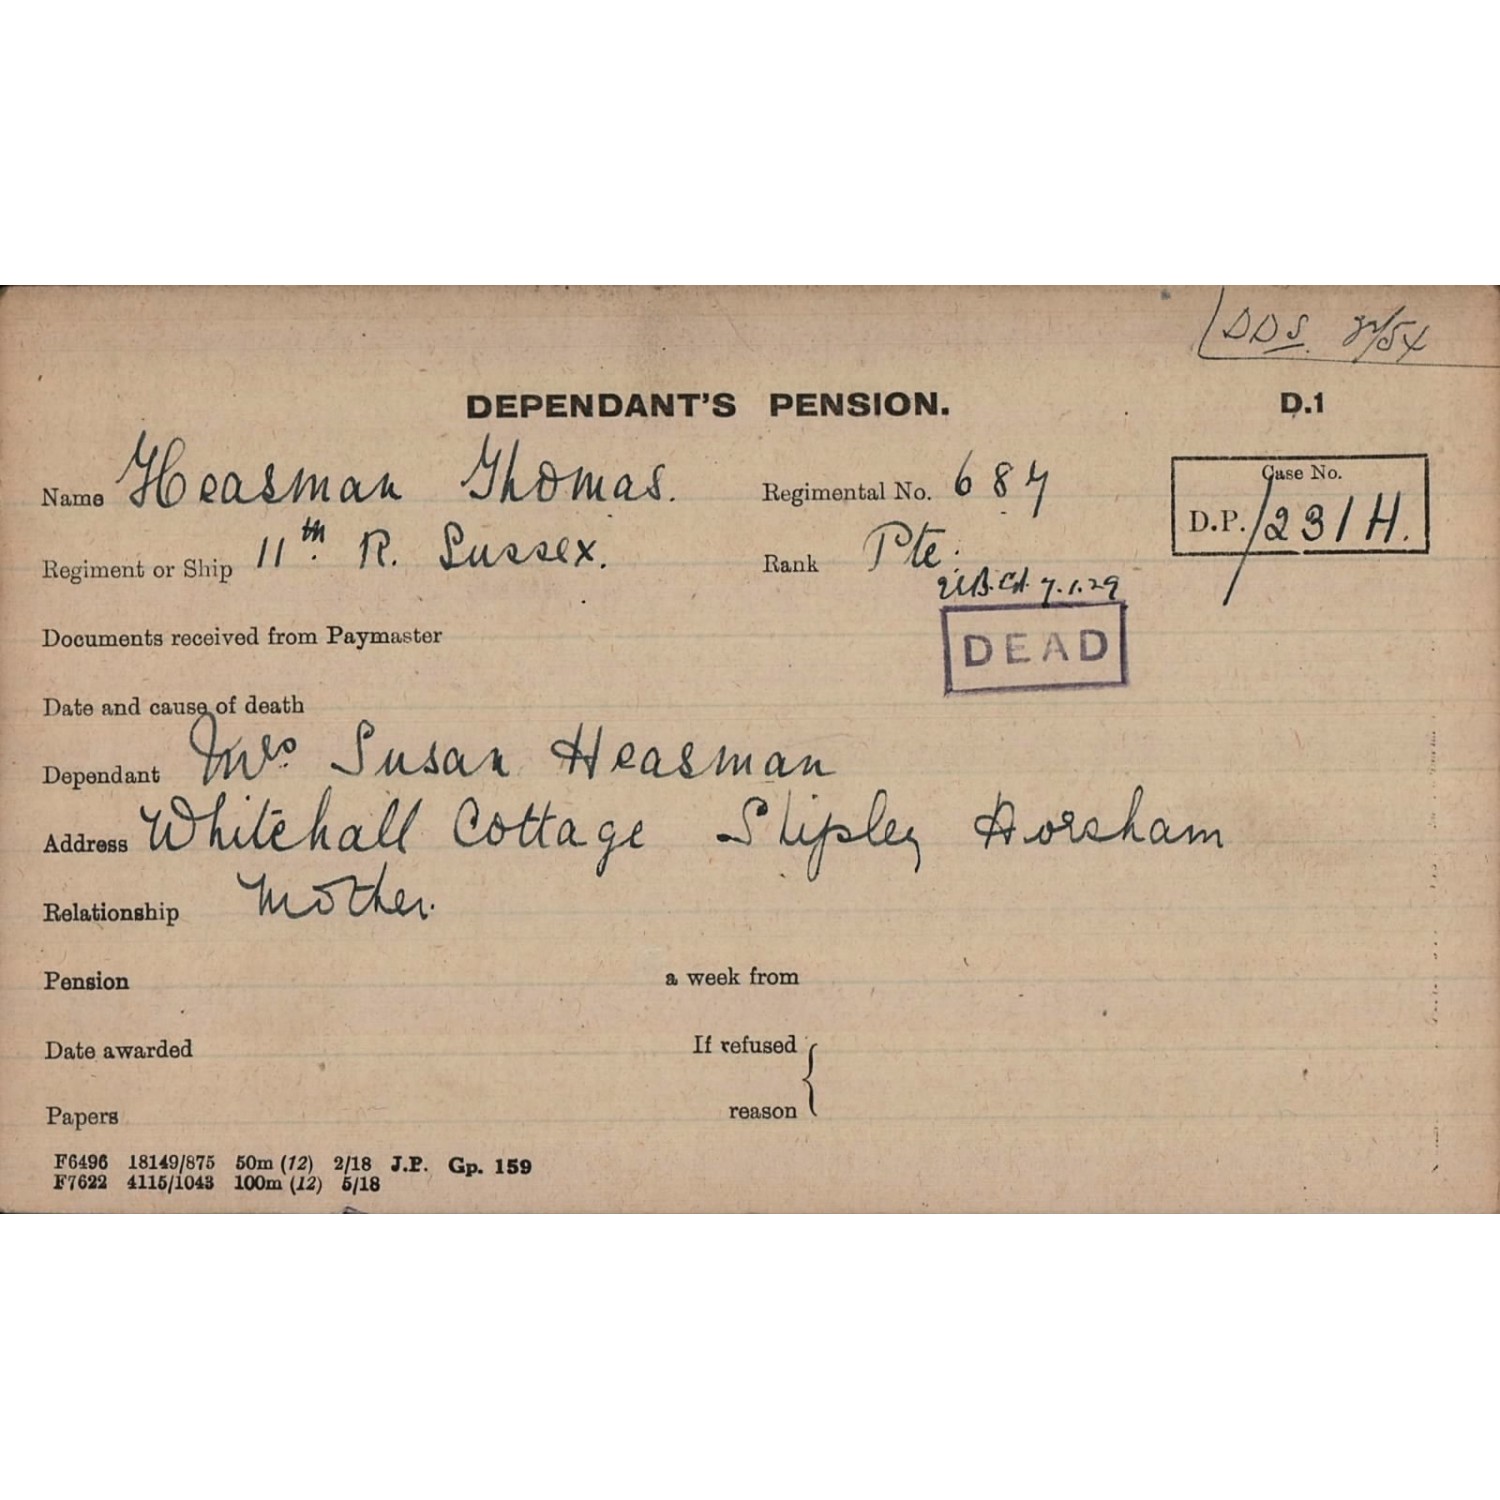 DDS.
DEPENDANT'S PENSION. D.1
Name Heasman Thomas. Regimental No. 687 Case No.
D.P./231H.
Regiment or Ship 11th R. Sussex. Rank Pte.
7.1.29
Documents received from Paymaster DEAD
Date and cause of death
Dependant Mrs Susan Heasman
Address Whitehall Cottage Shipley Horsham
Relationship Mother.
Pension a week from
Date awarded If refused
Papers reason
F6496 18149/875 50m (12) 2/18 J.P. Gp. 159
F7622 4115/1043 100m (12) 5/18